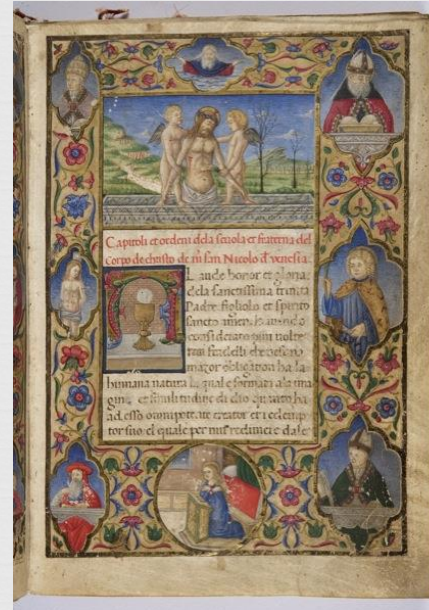 Capitoli et ordeni dela scuola et fraterna del
corpo de christo de m̃ san Nicolo d' venessia
Laude honor et gloria
dela sanctissima trinita
Padre figliolo et spirito
sancto amen havendo
considerato piui volte
fratelli che
mazor obligation ha la
humana natura la qual e formata a la ima
gine et similitudine di dio quanto ha
ad esso omnipotente creator et redemp
tor suo el quale per nui redimere dale